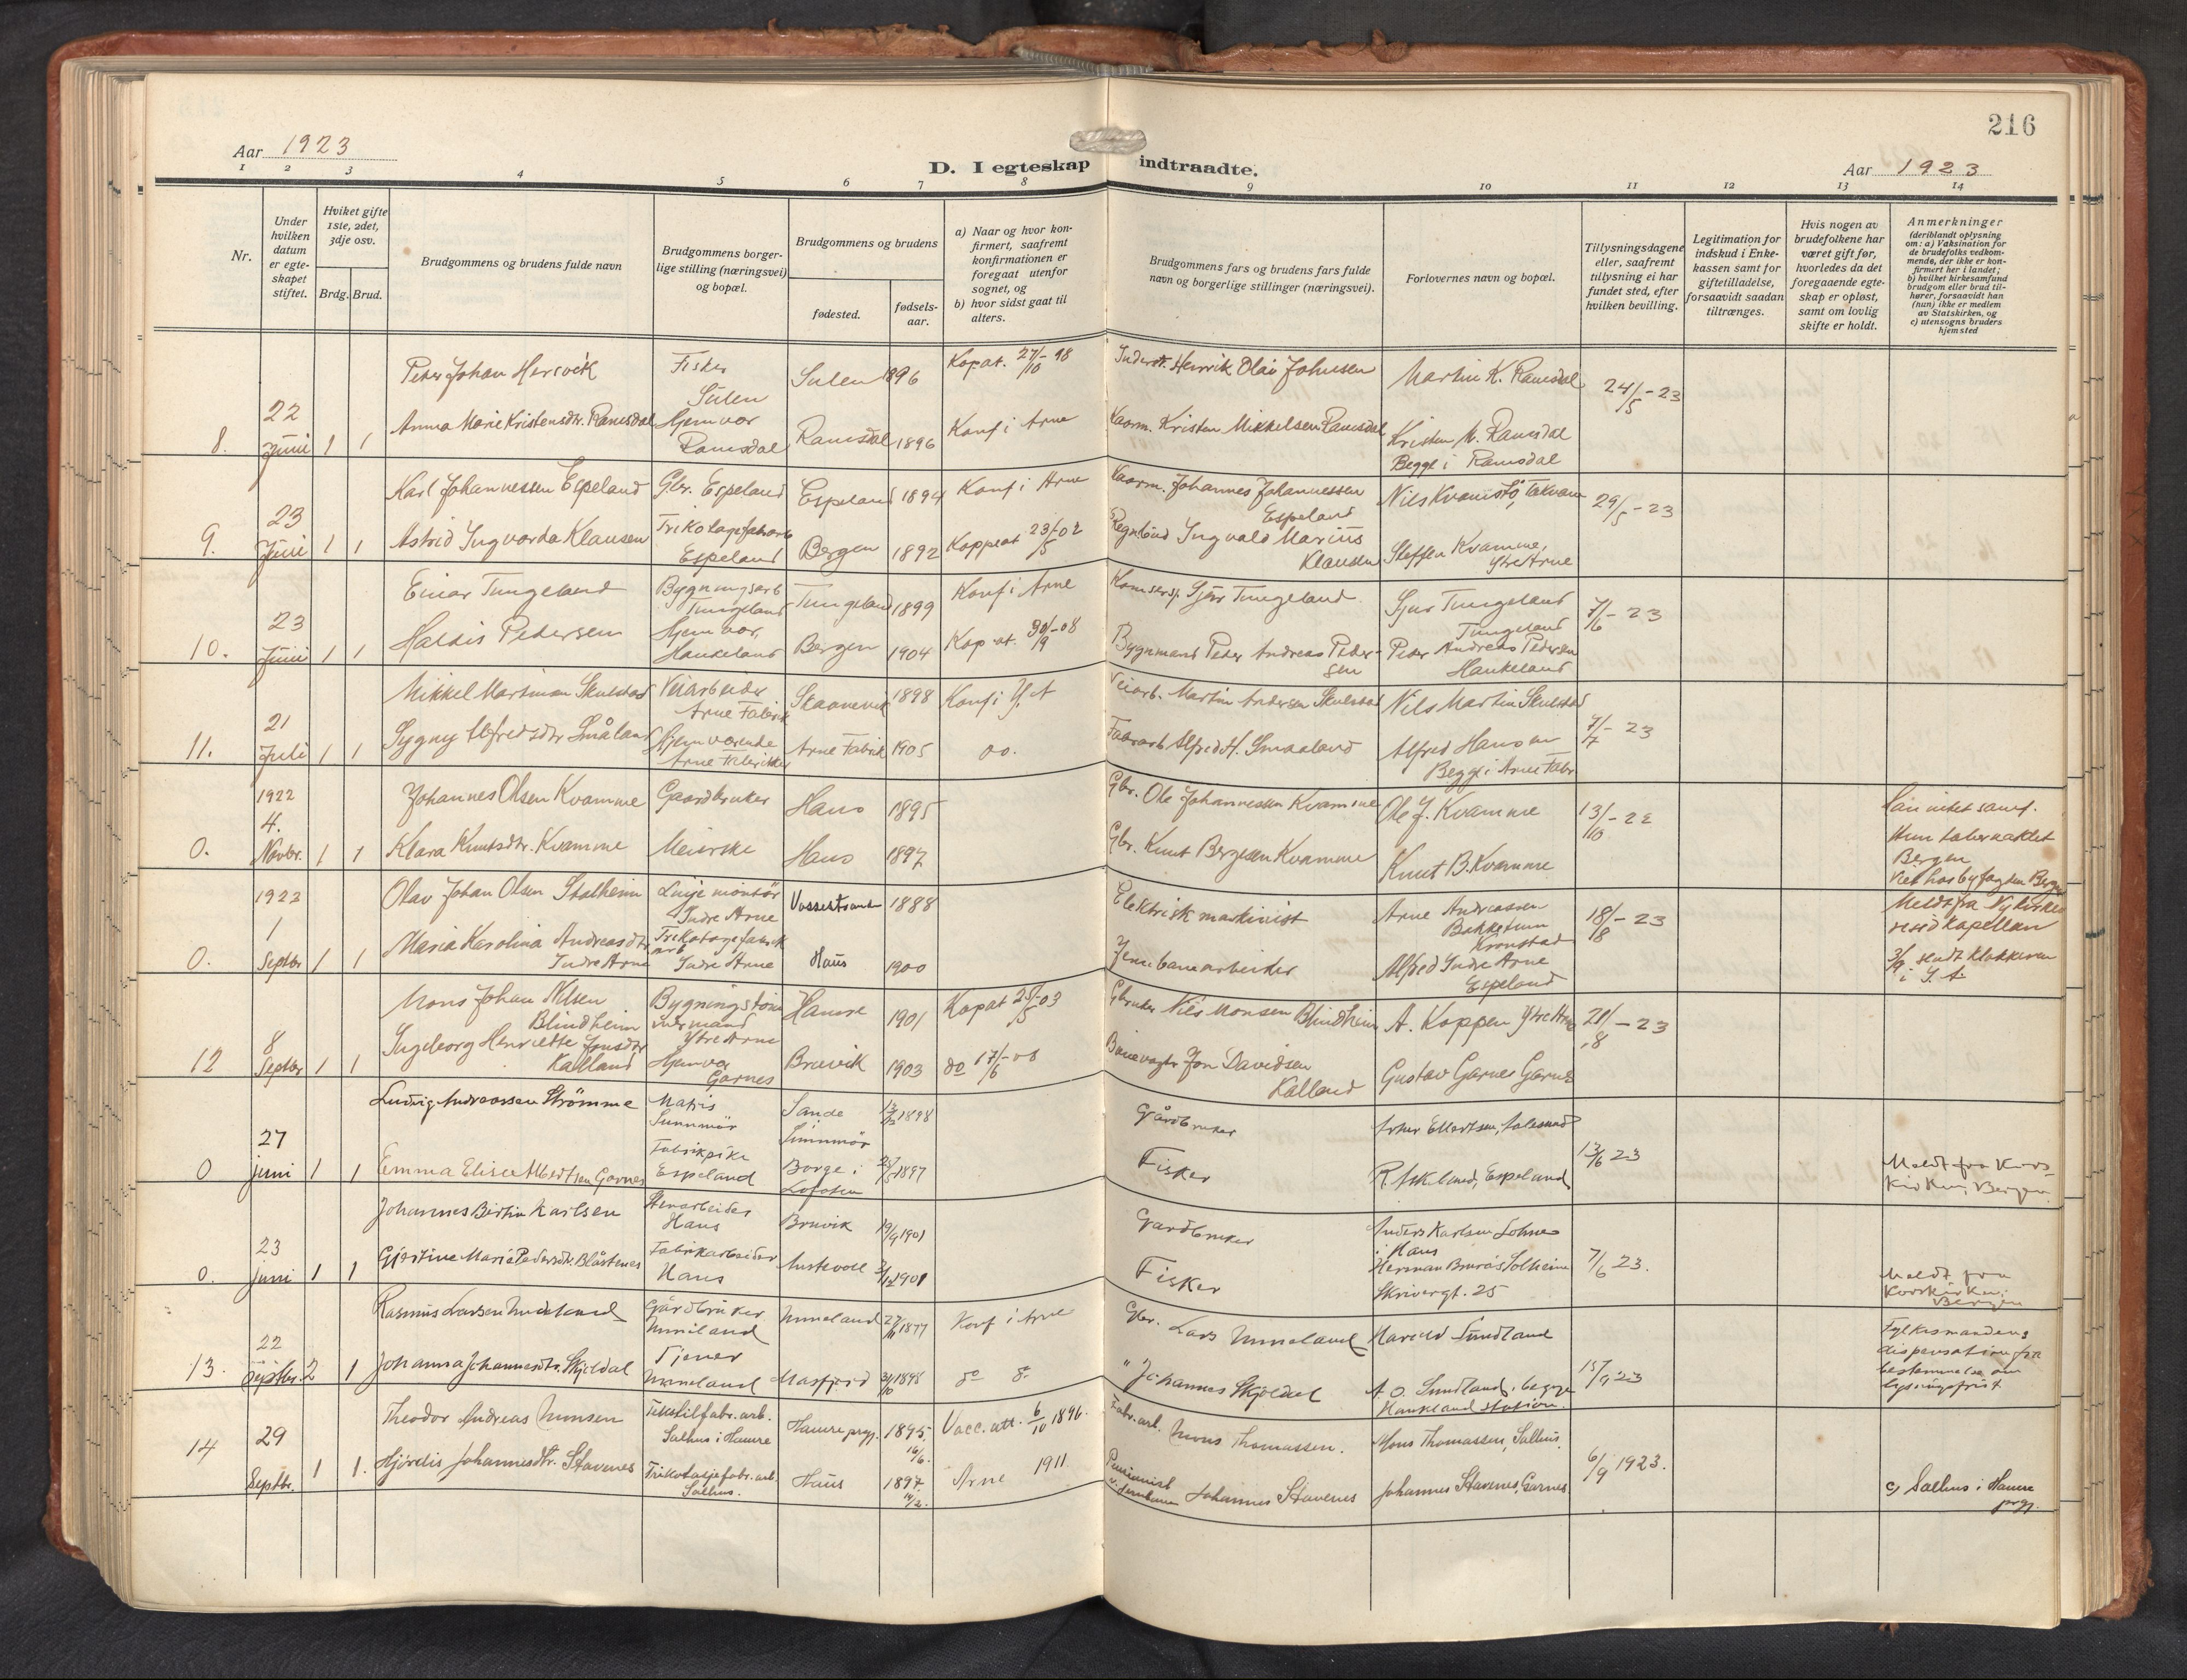 216
Aar 1923
D. I egteskap indtraadte.
Aar 1923
1 2 3 4 5 6 7 8 9 10 11 12 13 14
Nr.
Under
hvilken
datum
er egte-
skapet
stiftet.
Hviket gifte
1ste, 2det,
3dje osv.
Brdg. Brud.
Brudgommens og brudens fulde navn
Brudgommens borger-
lige stilling (næringsvei)
og bopæl.
Brudgommens og brudens
fødested.
fødsels-
aar.
a) Naar og hvor kon-
firmert, saafremt
konfirmationen er
foregaat utenfor
sognet, og
b) hvor sidst gaat til
alters.
Brudgommens fars og brudens fars fulde
navn og borgerlige stillinger (næringsvei).
Forlovernes navn og bopæl.
Tillysningsdagene
eller, saafremt
tillysning ei har
fundet sted, efter
hvilken bevilling.
Legitimation for
indskud i Enke-
kassen samt for
giftetilladelse,
forsaavidt saadan
tiltrænges.
Hvis nogen av
brudefolkene har
været gift før,
hvorledes da det
foregaaende egte-
skap er opløst,
samt om lovlig
skifte er holdt.
Anmerkninger
(deriblandt oplysning
om: a) Vaksination for
de brudefolks vedkom-
mende, der ikke er kon-
firmert her i landet;
b) hvilket kirkesamfund
brudgom eller brud til-
hører, forsaavidt han
(hun) ikke er medlem
av Statskirken, og
c) utensogns bruders
hjemsted
8. 22 Juni 1 1
Peter Johan Hersvik Fisker Sulen Sulen 1896 Kopat. 27/10-98 Henrik Olai Johnsen Martin K. Ramsdal 24/5-23
Anna Marie Kristensdtr. Ramsdal Hjemvor Ramsdal Ramsdal 1896 Konf i Arne Kaarm. Kristen Mikkelsen Ramsdal Kristen M. Ramsdal
Begge i Ramsdal
9. 23 Juni 1 1
Karl Johannessen Espeland Gbr. Espeland Espeland 1894 Konf i Arne Kaarm. Johannes Johannessen Espeland Nils Kvamstø, Takvam 29/5-23
Astrid Ingvarda Klausen Trikotagefabrarb Espeland Bergen 1892 Koppeat 23/5-02 Ingvald Marius Klausen Steffen Kvamme, Ytre Arne
10. 23 Juni 1 1
Einar Tungeland Bygningsarb Tungeland Tungeland 1899 Konf i Arne Sjur Tungeland Sjur Tungeland Tungeland 7/6-23
Haldis Pedersen Hjemvor, Haukeland Bergen 1904 Kopat. 30/9-08 Bygnmand Peder Andreas Pedersen Peder Andreas Pedersen Haukeland
11. 21 Juli 1 1
Mikkel Martinsen Skulstad Veiarbeider Arne Fabrik Skaanevik 1898 Konf i Y. A Veiarb. Martin Andersen Skulstad Nils Martin Skulstad 7/7-23
Sygny Alfredsdtr Småland Hjemværende Arne Fabrikker Arne Fabrik 1905 do. Fabrarb. Alfred H. Smaaland Alfred Hansen
Begge i Arne Fabr
0. 1922 4. Novbr. 1 1
Johannes Olsen Kvamme Gaardbruker Haus 1895 Gbr. Ole Johannessen Kvamme Ole J. Kvamme 13/10-22
Klara Knutsdtr. Kvamme Meierske Haus 1897 Gbr. Knut Bergesen Kvamme Knut B. Kvamme
Hun tabernaklet
Bergen
Viet hos byfogden Bergen
0. 1923 1 Septbr 1 1
Olav Johan Olsen Stalheim Linjemontør Indre Arne Vossestrand 1888 Elektrisk maskinist Arne Andreassen Kronstad 18/8-23
Maria Karolina Andreasdtr Indre Arne Trikotagefabrik arb Indre Arne Haus 1900 Jernbanearbeider Alfred Indre Arne Espeland
Meldt fra Nykirken
resid kapellan
3/9 sendt klokkeren
i Y. A.
12 8 Septbr 1 1
Mons Johan Nilsen Blindheim Ytre Arne Hamre 1901 Kopat 25/5-03 Gbruker Nils Monsen Blindheim A. Koppen Ytre Arne 21/8-23
Ingeborg Henriette Jonsdtr Kalland Hjemvo Garnes Bruvik 1903 do 17/6-08 Banevogter Jon Davidsen Kalland Gustav Garnes Garnes
0 27 juni 1 1
Ludvig Andreassen Strömme Matros Sunnmör Sande Sunnmör 1898 Gårdbruker 13/6 23
Emma Elise Albertsen Garnes Fabrikpike Espeland Borge i Lofoten 1897 Fisker R. Askeland, Espeland
Meldt fra Kors-
kirken, Bergen.
0. 23 juni 1 1
Johannes Bertin Karlsen Stenarbeider Haus Bruvik 19/9 1901 Gardbruker Anders Karlsen Lohne i Haus 7/6 23.
Gjertine Marie Pedersdtr. Blåstenes Fabrikarbeider Haus Austevoll 1901 Fisker Herman Solheim
Skivergt. 25
Meldt fra
Korskirken,
Bergen
13. 22 Septbr. 2 1
Rasmus Larsen Unneland Gårdbruker Unneland Unneland 1877 Konf i Arne Gbr. Lars Unneland Harald Sundland 15/9 23
Johanna Johannesdtr. Skjeldal Tjener Unneland Masfjord 1898 do do " Johannes Skjeldal A. O. Sundland, begge
Haukeland station.
Fylkesmandens
dispensation fra
bestemmelse om
lysningsfrist
14 29 Septbr. 1 1.
Theodor Andreas Monsen Tekstilfabr. arb. Salhus i Hamre Hamre prgj. 1895 16/6. Vacc. att. 6/10 1896. Fabr. arb. Mons Thomassen. Mons Thomassen, Salhus. 6/9 1923.
Hjördis Johannesdtr. Stavenes Trikotasjefabr. arb. Salhus. Haus 1897. 14/2. Arne 1911. Pensionist v. jernbanen Johannes Stavenes Johannes Stavenes, Garnes
c) Salhus i Hamre
prgj.